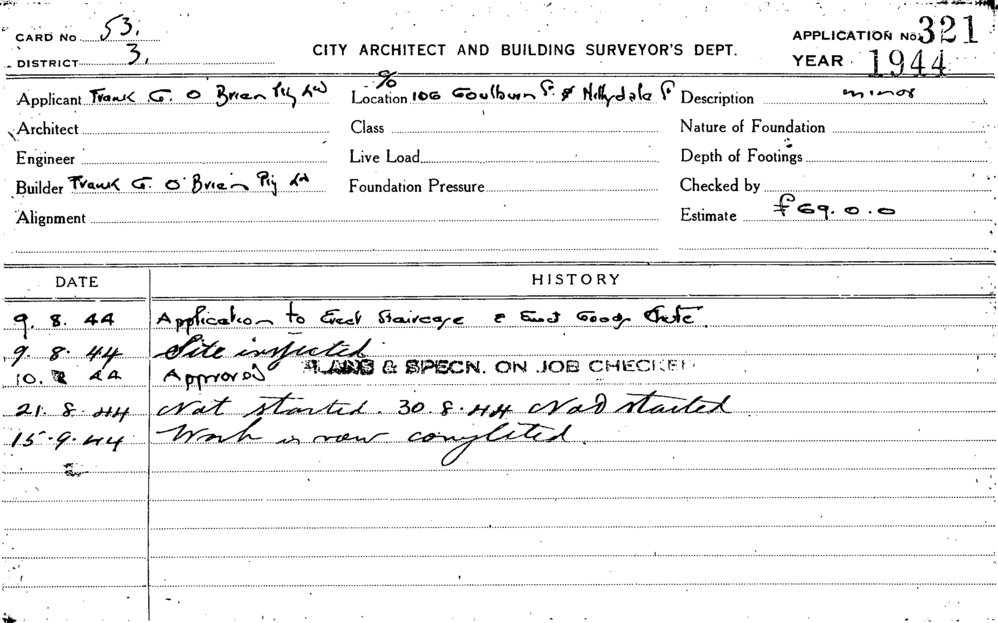 CARD No 53.
DISTRICT 3.
CITY ARCHITECT AND BUILDING SURVEYOR'S DEPT.
APPLICATION No 321
YEAR 1944
Applicant Frank G. O'Brien Pty Ltd Location % 106 Goulburn St & Description minor
Architect Class Nature of Foundation
Engineer Live Load Depth of Footings
Builder Frank G. O'Brien Pty Ltd Foundation Pressure Checked by
Alignment Estimate £69.0.0
DATE HISTORY
9. 8. 44 Application to Erect Staircase & Goods
9. 8. 44 Site inspected
10. 8 44 Approved PLANS & SPECN. ON JOB CHECKED
21. 8. 44 Not started. 30. 8. 44 Not started
15. 9. 44 Work is now completed.